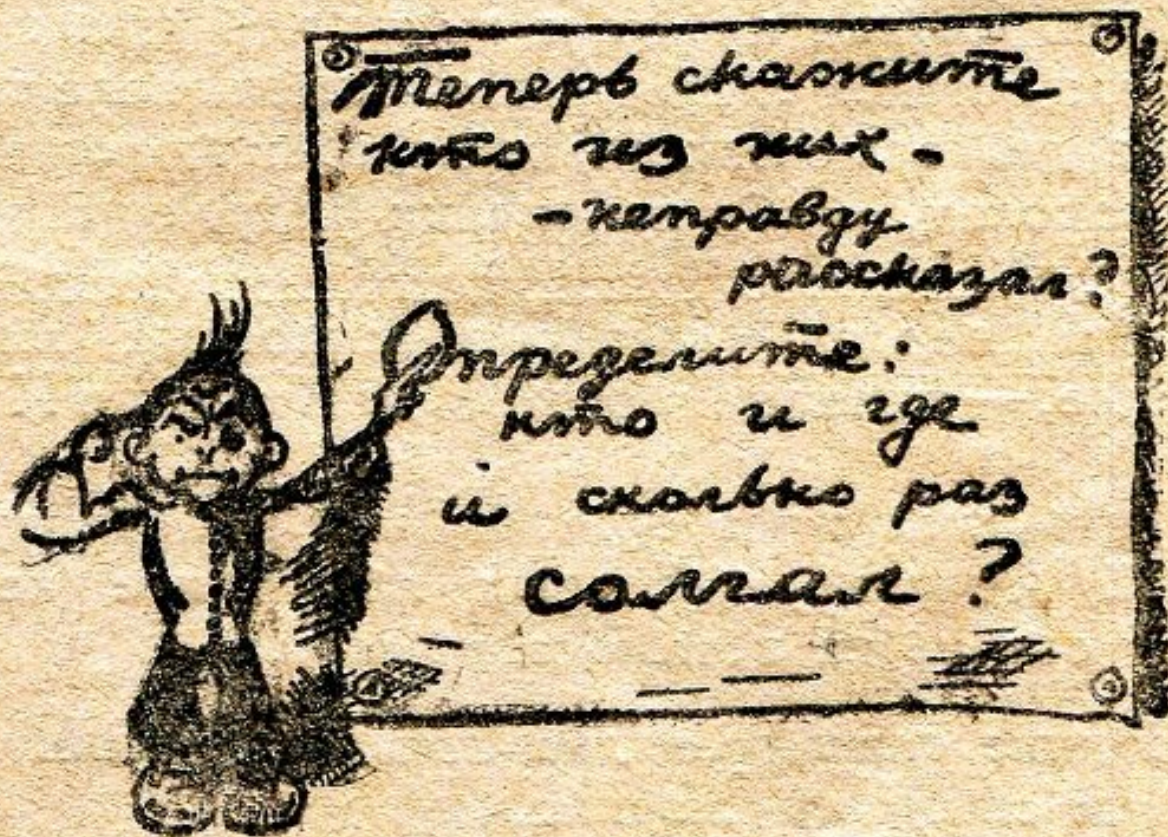 Теперь скажите
кто из них -
- неправду
рассказал?
Определите:
кто и где
и сколько раз
солгал?